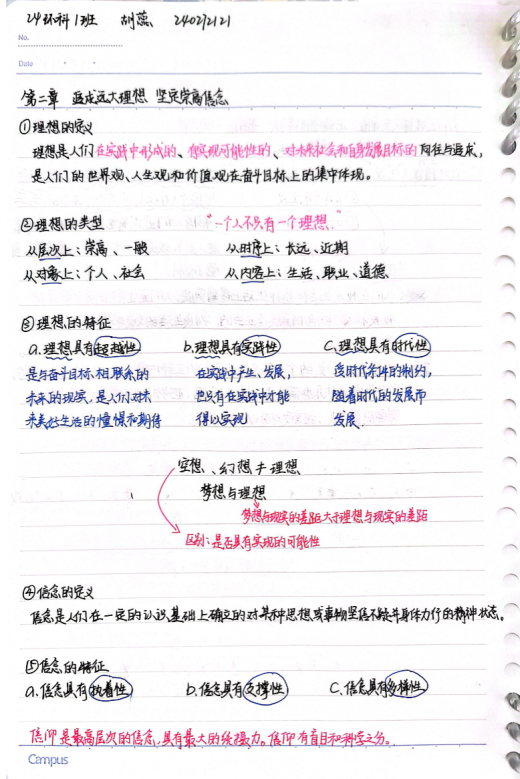 24环科1班 胡蕊 240212121
No.
Date
第二章 追求远大理想 坚定崇高信念
①理想的定义
理想是人们在实践中形成的、有实现可能性的、对未来社会和自身发展目标的向往与追求,
是人们的世界观、人生观和价值观在奋斗目标上的集中体现。
②理想的类型 "一个人不只有一个理想."
从层次上:崇高、一般 从时序上:长远、近期
从对象上:个人、社会 从内容上:生活、职业、道德
③理想的特征
a.理想具有超越性 b.理想具有实践性 C.理想具有时代性
是与奋斗目标相联系的 在实践中产生、发展, 受时代条件的制约,
未来的现实,是人们对未 也只有在实践中才能 随着时代的发展而
来美好生活的憧憬和期待 得以实现 发展
空想、幻想≠理想
梦想与理想
梦想与现实的差距大于理想与现实的差距
区别:是否具有实现的可能性
④信念的定义
信念是人们在一定的认识基础上确立的对某种思想或事物坚信不疑并身体力行的精神状态。
⑤信念的特征
a.信念具有执着性 b.信念具有支撑性 C.信念具有多样性
信仰是最高层次的信念,具有最大的统摄力。信仰有盲目和科学之分。
Campus